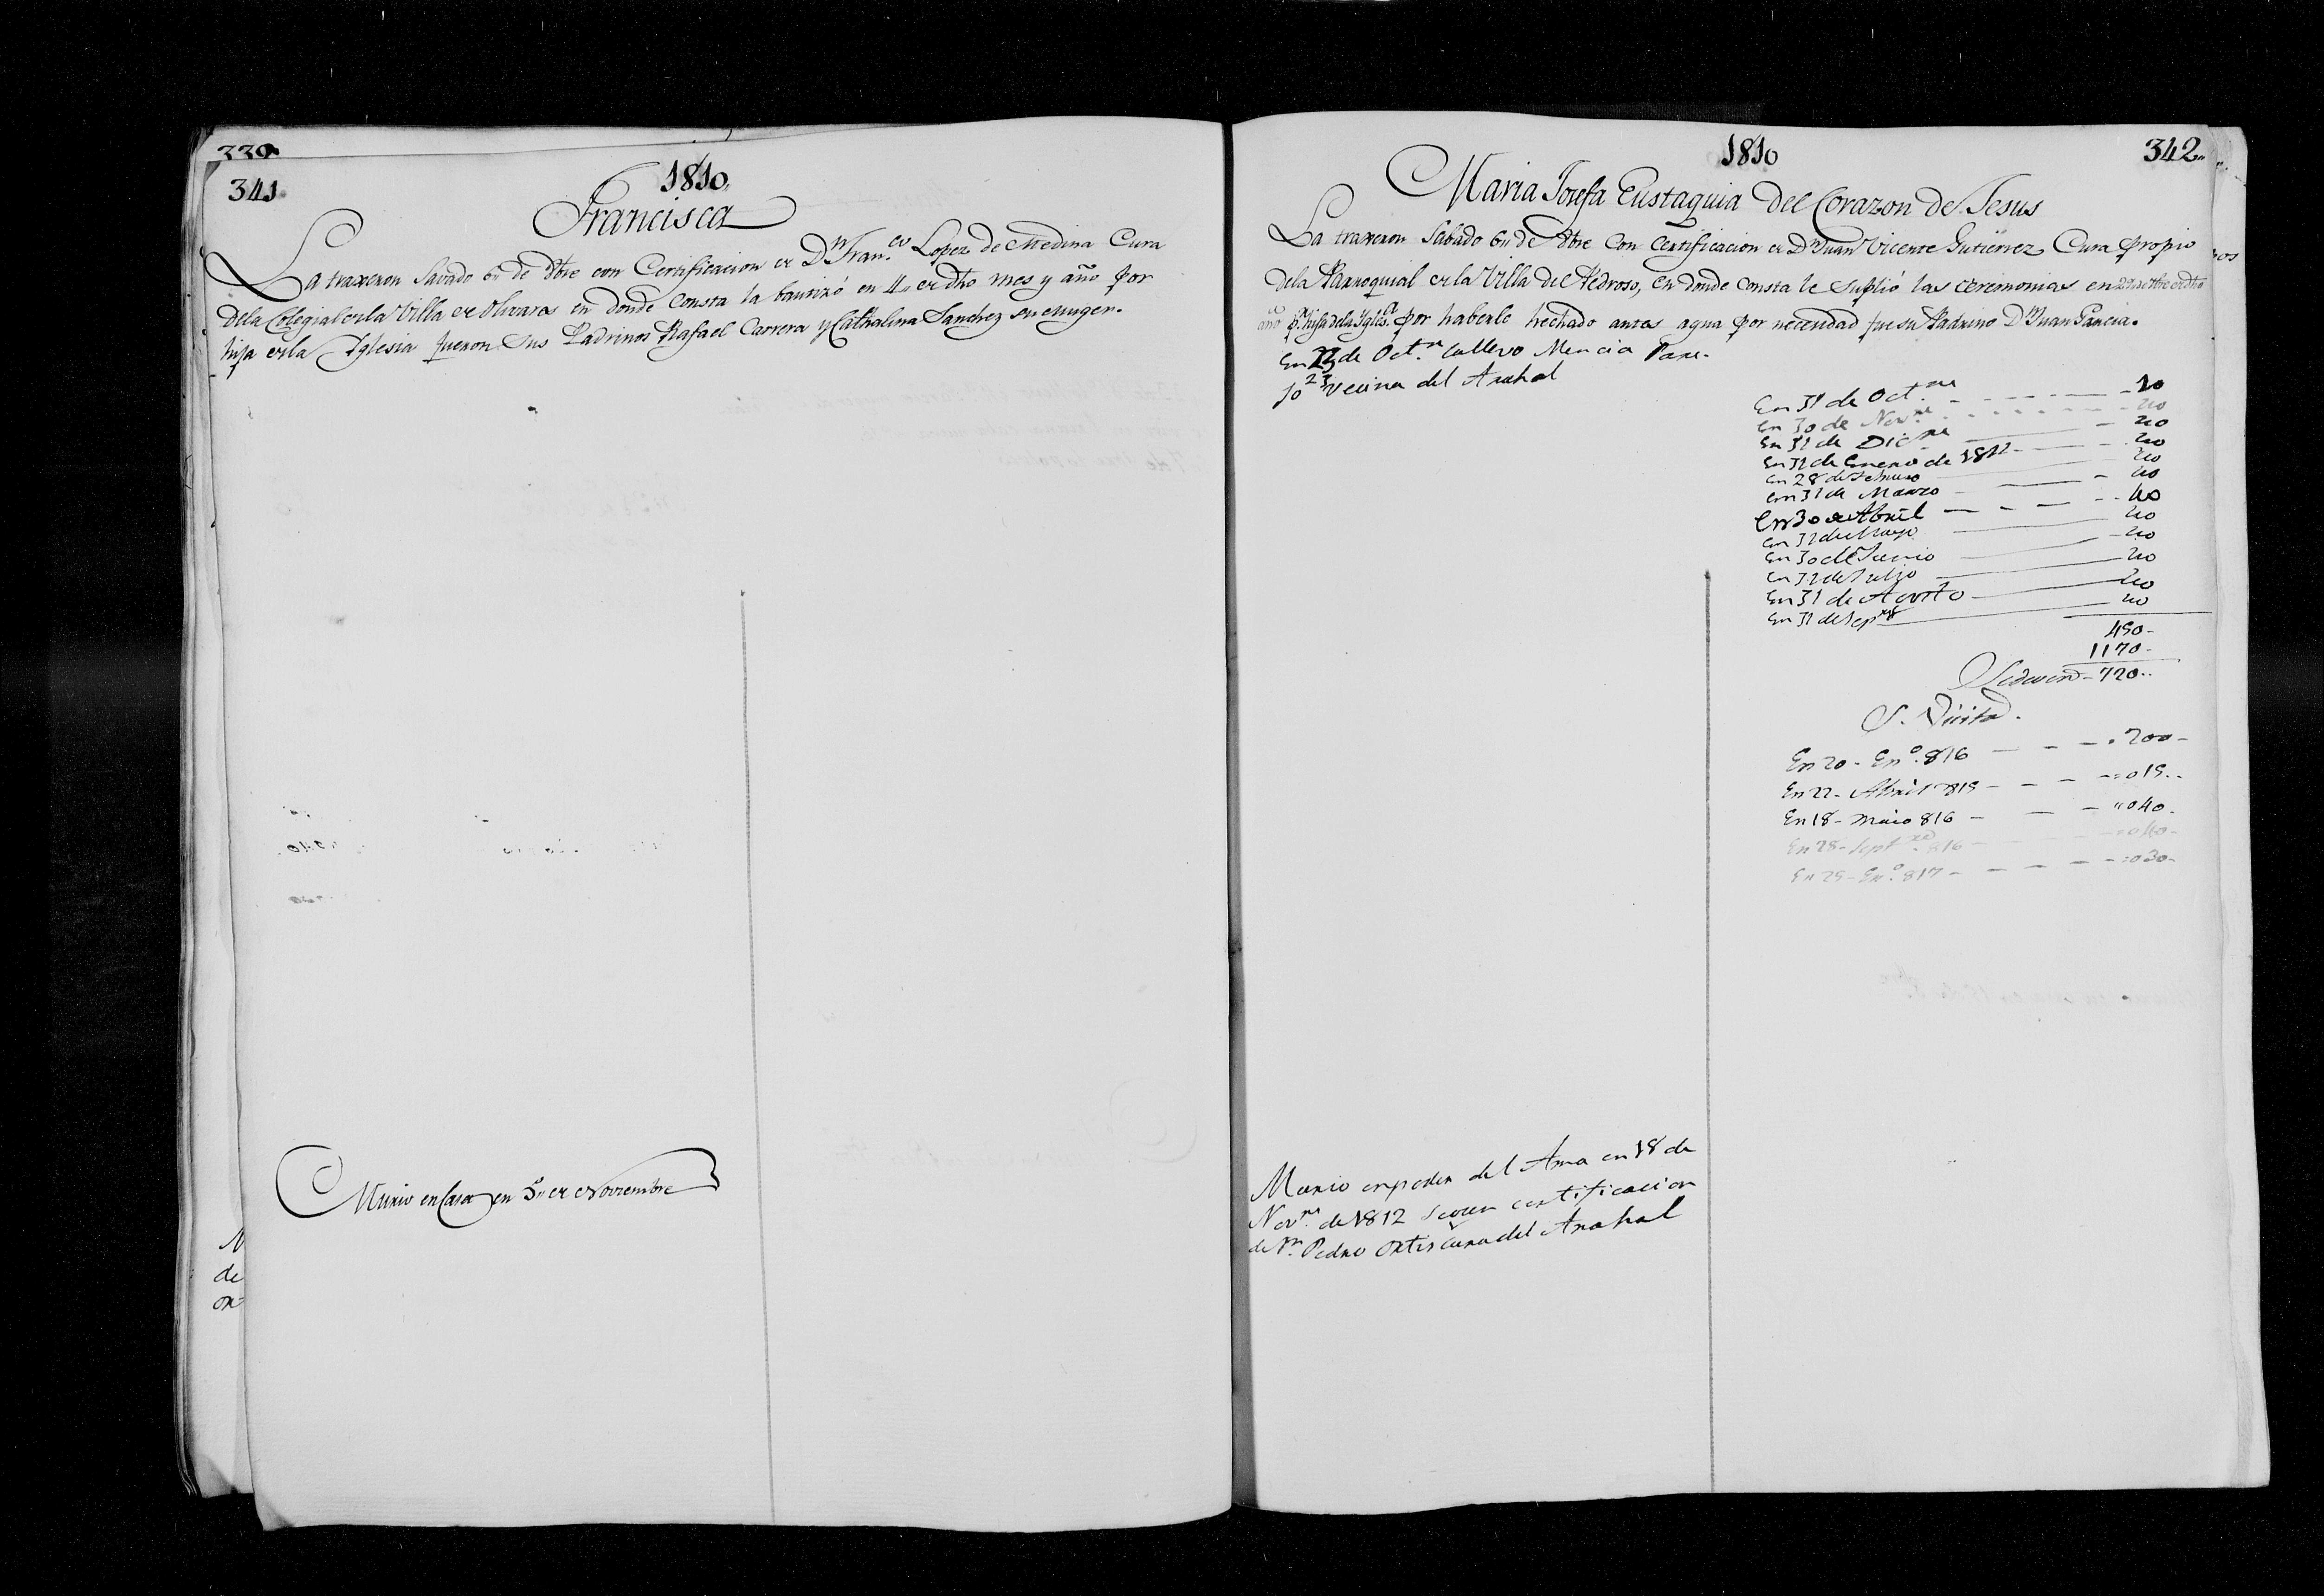 339
341
1810
Francisca
La traxeron Savado 6,, de 8bre con Certificacion de Dn Fran.co Lopez de Medina Cura
dela Colegial de la Villa de Olivares en donde consta la bautizó en 4,, de dho mes y año por
hija de la Yglesia fueron sus Padrinos Rafael Carrera y Cathalina Sanchez su muger.
Murio en Casa en 5,, de Noviembre
N
de
or
1810
342
Maria Josefa Eustaquia del Corazon de Jesus
La traxeron Sabado 6,, de 8bre con Certificacion de Dn Juan Vicente Gutierrez Cura propio
dela Parroquial de la Villa del Pedroso, en donde consta le suplió las ceremonias en
año pr hija de la Yglesa por haberle hechado antes agua por necesidad fue su Padrino Dn Juan Garcia.
En 23 de Oct.re la llevo Mencia Pare-
jo vecina del Arahal
En 31 de Oct.re - 10
En 30 de Nov.re - 40
En 31 de Dic.re - 40
En 31 de Enero de 1811 - 40
En 28 de Febrero 40
En 31 de Marzo - 40
En 30 de Abril - 40
En 31 de Mayo 40
En 30 de Junio - 40
En 31 de Julio 40
En 31 de Agosto 40
En 31 de Sep.re 40
450-
1170-
Se deven - 720..
S. Visita.
En 20 - En.o 816 - 200-
En 22 - Abril 815 - 015..
En 18 - Maio 816 - 040.
En 28 - Sept.re 816 - 040-
En 25 - En.o 817 - 030-
Murio en poder del Ama en 18 de
Nov.re de 1812 segun certificacion
de Dn Pedro Ortis cura del Arahal